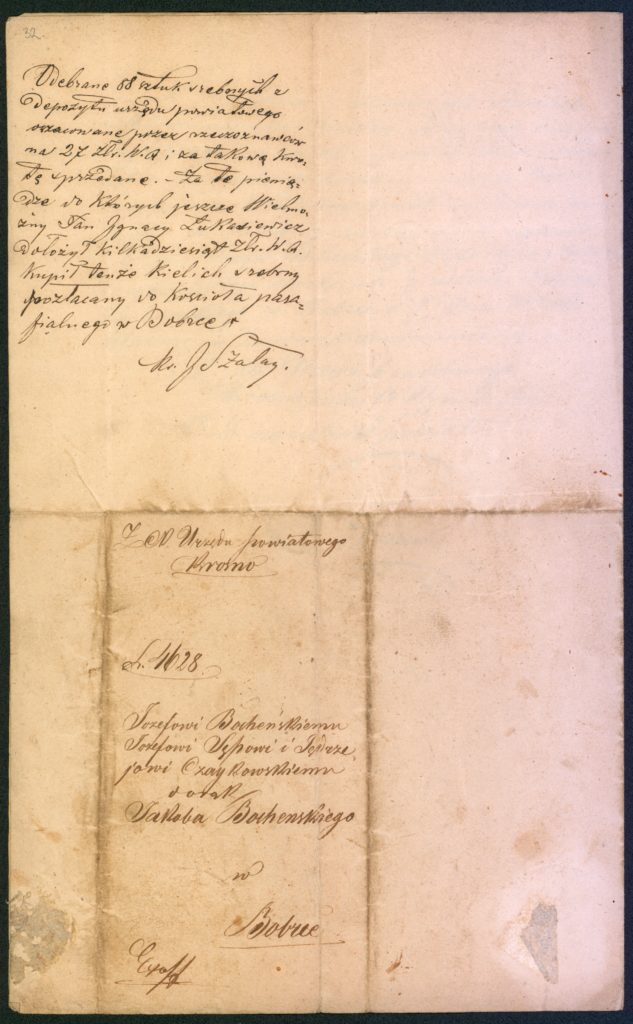 32.
Odebrane 88 sztuk srebnych z
depozytu urzędu powiatowego
oszacowane przez rzeczoznawców
na 27 Złr. W.A i za takową kwo-
tę sprzedane. – Za te pienią-
dze do których jeszcze Wielmo-
żny Pan Ignacy Łukasiewicz
dołożył kilkadziesiąt Złr. W.A.
kupił tenże Kielich srebrny
pozłacany do Kościoła para-
fialnego w Bobrce
ks. J Szalay.
Urzędu powiatowego
Krosno
L. 4628.
Józefowi Bocheńskiemu
Józefowi i Jędrze-
jowi Czaykowskiemu
do rąk
Jakóba Bochenskiego
w
Bobrce